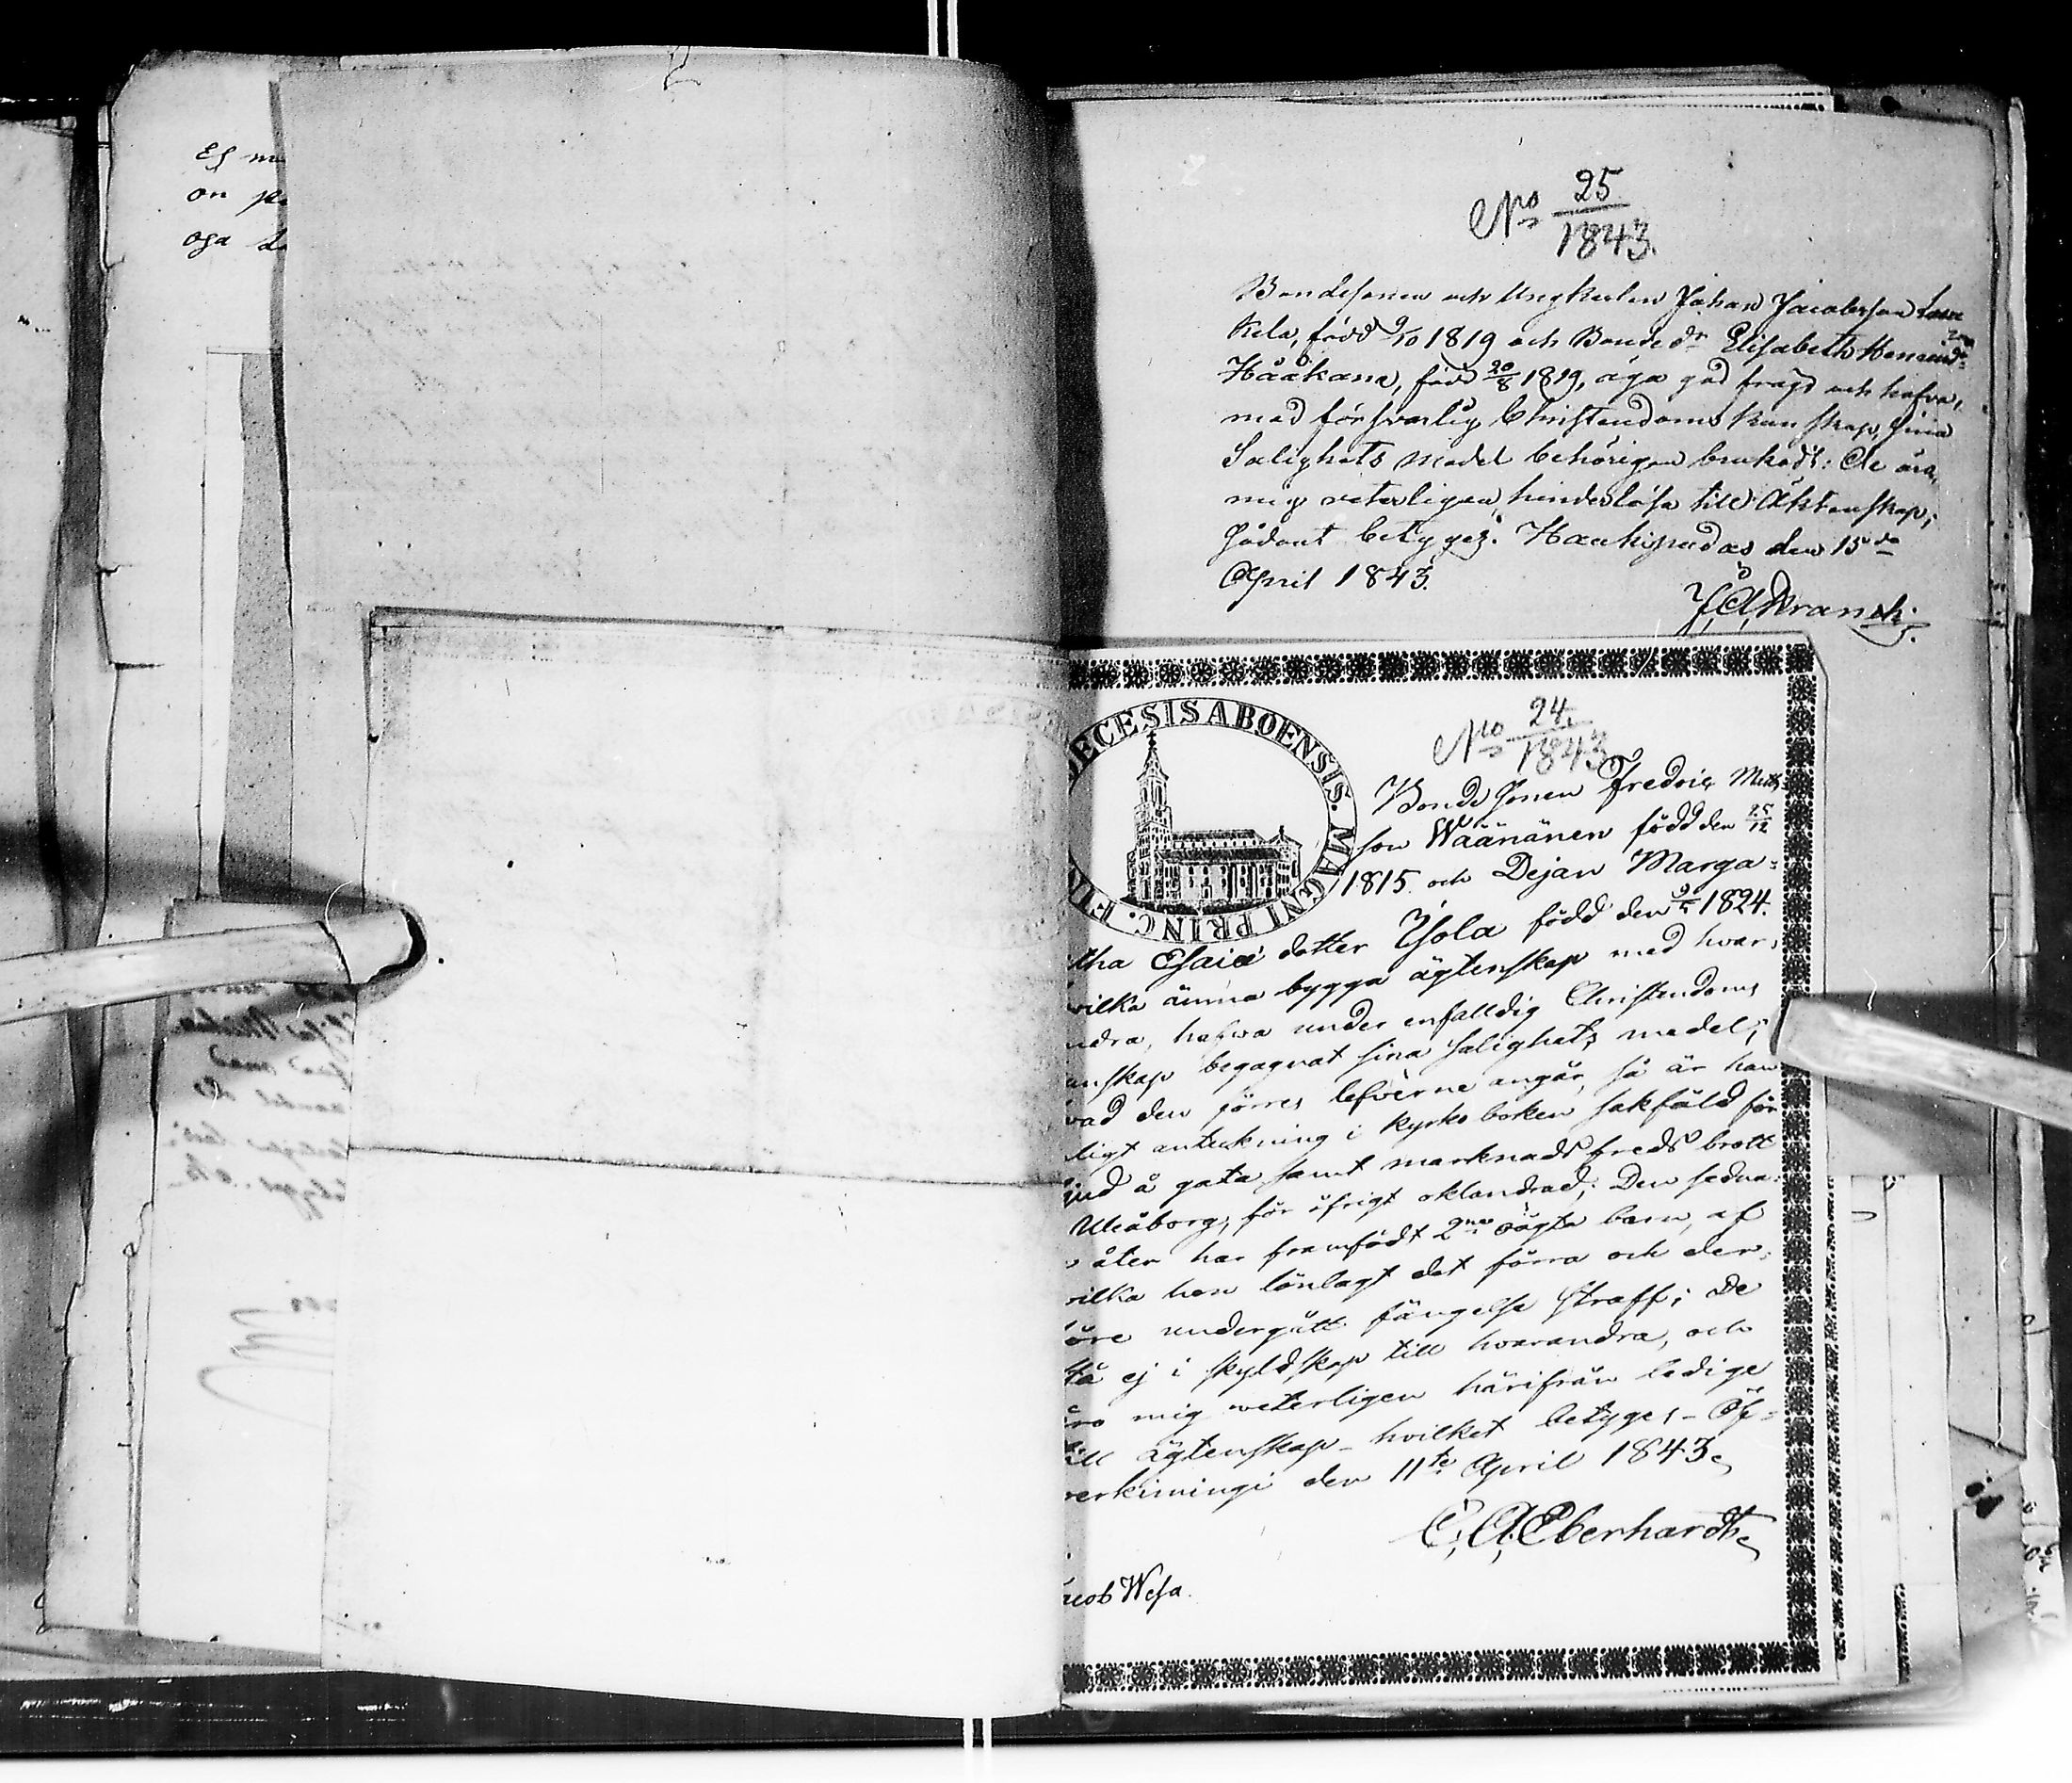 Ef
on
oga
No 25/1843.
Bondesonen och Ungkarlen Johan Jacobsson
kela, född 9/10 1819 och Bonde dr Elisabeth
Hååkana, född 20/8 1819, äga god frägd och hafva,
med försvarlig Christendoms kunskap, sina
Salighets medel behörigen brukadt: De äro,
mig veterligen, hinderlösa till Äktenskap;
sådant betyges. Haukipudas den 15de
April 1843.
No 24./1843
ECESIS ABOENSIS. MAGNI PRINC. FIN
Bonde Sonen Fredric Matts
son Wäänänen född den 25/12
1815. och Dejan Marga=
tha Esaiæ dotter Ysola född den 1824.
vilka ämna bygga ägtenskap med hvar,
ndra, hafwa under enfalldig Christendoms
unskap begagnat sina salighets medel;
vad den förres lefverne angår, så är han
ligt anteckning i kyrko boken sakfäld för
jud å gata samt marknads freds brott
Uleåborg, för öfrigt oklandrad; Den sedna=
åter har framfödt 2ne oägta barn, af
vilka hon lönlagt det förra och der=
före undergått fängelse straff; De
stå ej i skyldskap till hvarandra, och
äro mig veterligen härifrån ledige
till ägtenskap – hvilket betyges – Öf=
verkiimingi den 11te April 1843.
C. A. Eberhardt
acob Wesa.